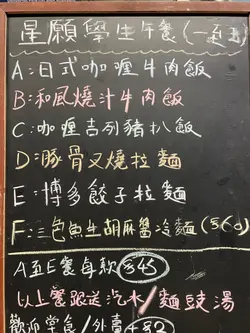 星願學生午餐(一至五
A:日式咖喱牛肉飯
B:和風燒汁牛肉飯
C:咖喱吉列豬扒飯
D:豚骨叉燒拉麵
E:博多餃子拉麵
F:三色魚生胡麻醬冷麵($60)
A至E餐每款$45
以上餐跟送汽水/麵豉湯
歡迎堂食/外賣482